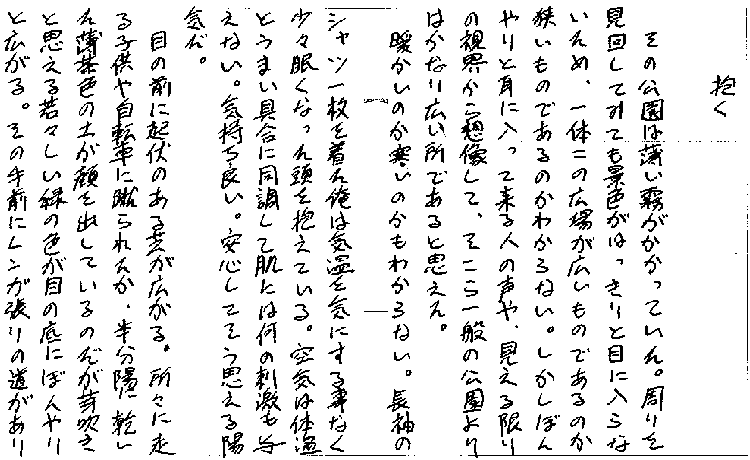 抱く
その公園は薄い霧がかかっていた。周りを
見回してみても景色がはっきりと目に入らな
いため、一体この広場が広いものであるのか
狭いものであるのかわからない。しかしぼん
やりと耳に入って来る人の声や、見える限り
の視界から想像して、そこら一般の公園より
はかなり広い所であると思えた。
暖かいのか寒いのかもわからない。長袖の
シャツ一枚を着た俺は気温を気にする事なく
少々眠くなった頭を抱えている。空気は体温
とうまい具合に同調して肌には何の刺激も与
えない。気持ち良い。安心してそう思える陽
気だ。
目の前に起伏のある芝が広がる。所々に走
る子供や自転車に蹴られたか、半分陽に乾い
た薄茶色の土が顔を出しているのだが芽吹き
と思える若々しい緑の色が目の底にぼんやり
と広がる。その手前にレンガ張りの道があり